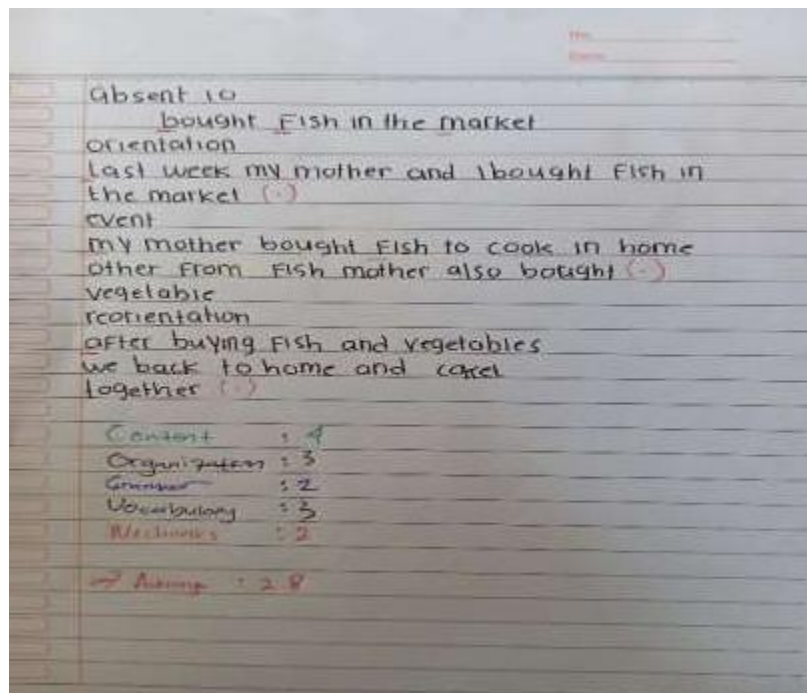 absent 10
bought Fish in the market
orientation
Last week my mother and I bought Fish in
the market (.)
event
my mother bought Fish to cook in home
other from Fish mother also botught (.)
vegetable
reorientation
after buying Fish and vegetables
we back to home and
together (.)
Content : 4
Organization : 3
Grammar : 2
Vocabulary : 3
Mechanics : 2
→ Average : 2.8